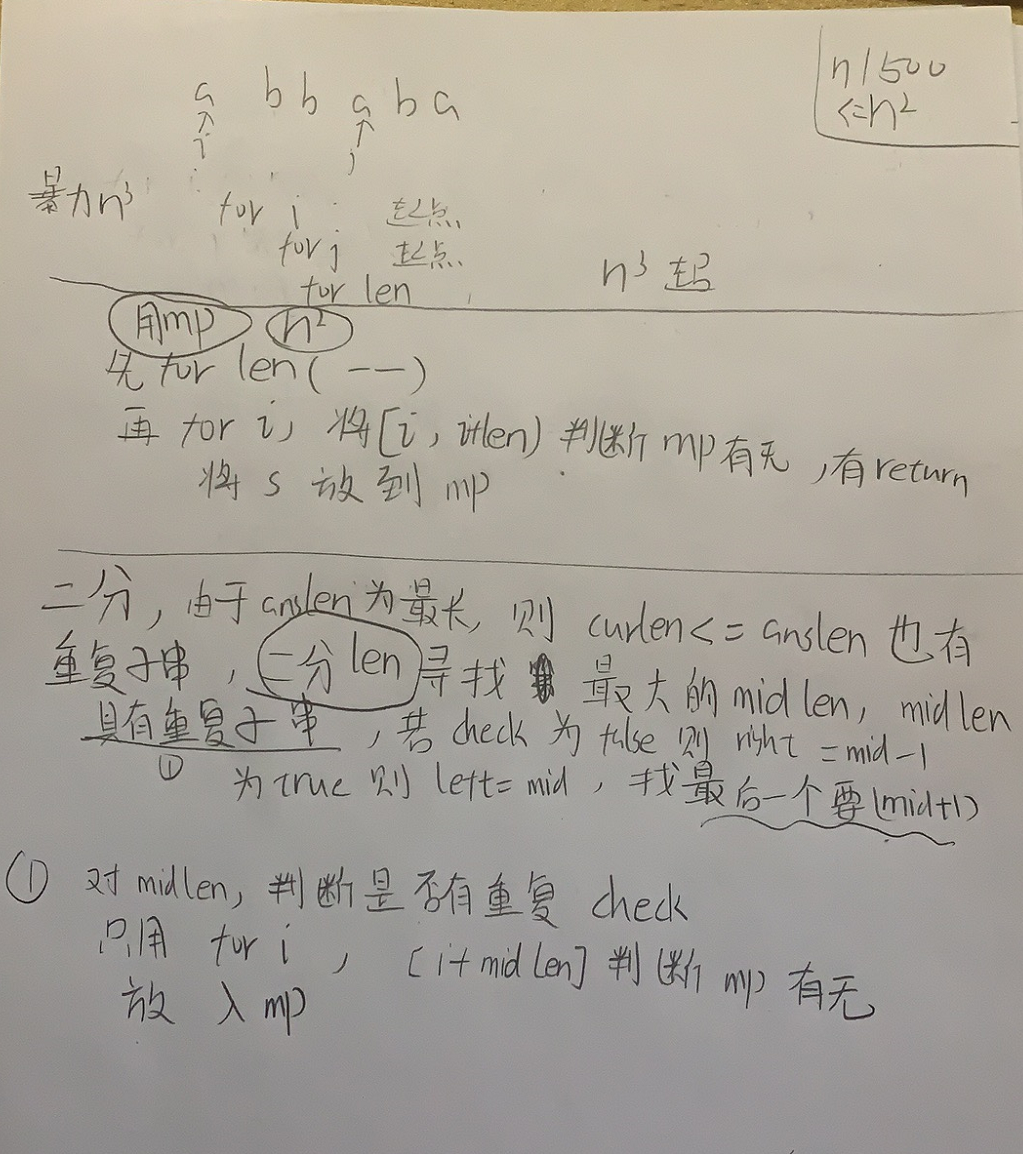 n 1500
<=n²
a b b a b a
↑ ↑
i j
暴力n³ for i 起点
for j 起点
for len n³ 起
用mp n²
先 for len( -- )
再 for i, 将[i, i+len) 判断 mp 有无, 有return
将 s 放到 mp
二分, 由于 anslen 为最长, 则 curlen<= anslen 也有
重复子串, 二分 len 寻找 最大的 midlen, midlen
具有重复子串, 若 check 为 false 则 right = mid-1
① 为 true 则 left= mid, 找最后一个要(mid+1)
① 对 midlen, 判断是否有重复 check
只用 for i, [i+midlen] 判断 mp 有无
放入 mp